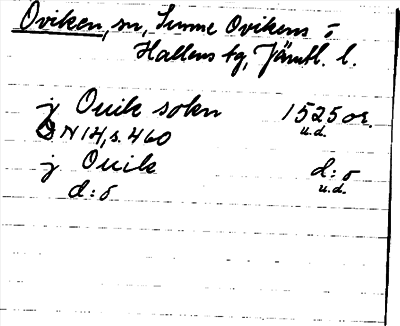 Oviken, sn, Sunne Ovikens o
Hallens tg, Jämtl. l.
j Ouik sokn 1525 or.
u.d.
DN 14, s. 460
j Ouik d:o
d:o u.d.